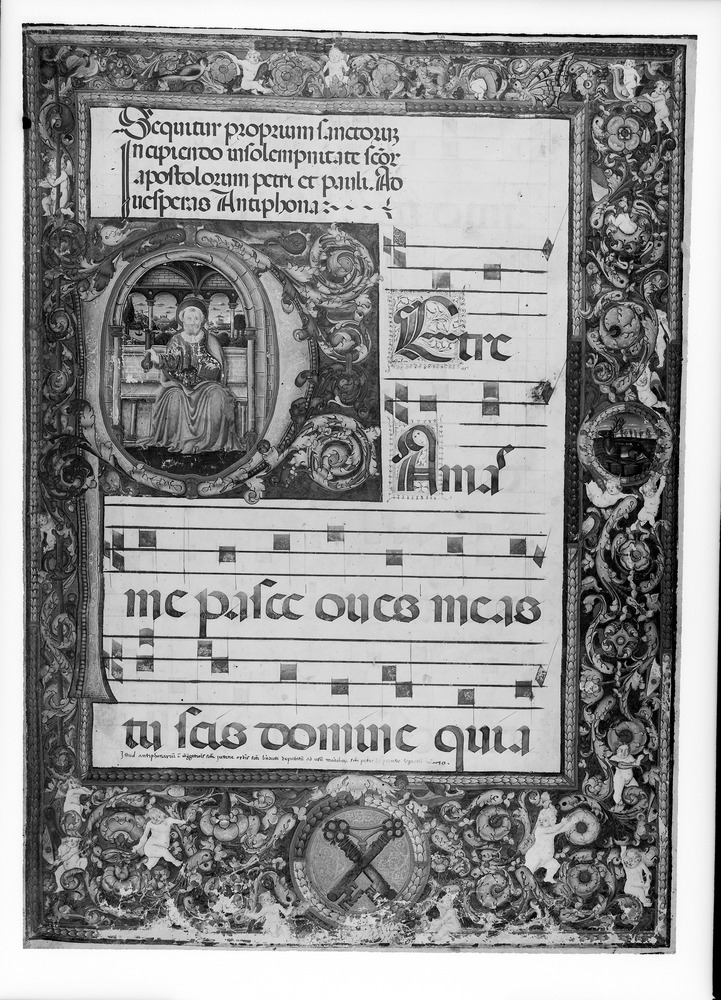 Sequitur proprium sanctoruz
Incipiendo insolempnitate scor̄
apostolorum petri et pauli. Ad
uesperas Antiphona:
P
Etre
Amas
me pasce oues meas
tu scis domine quia